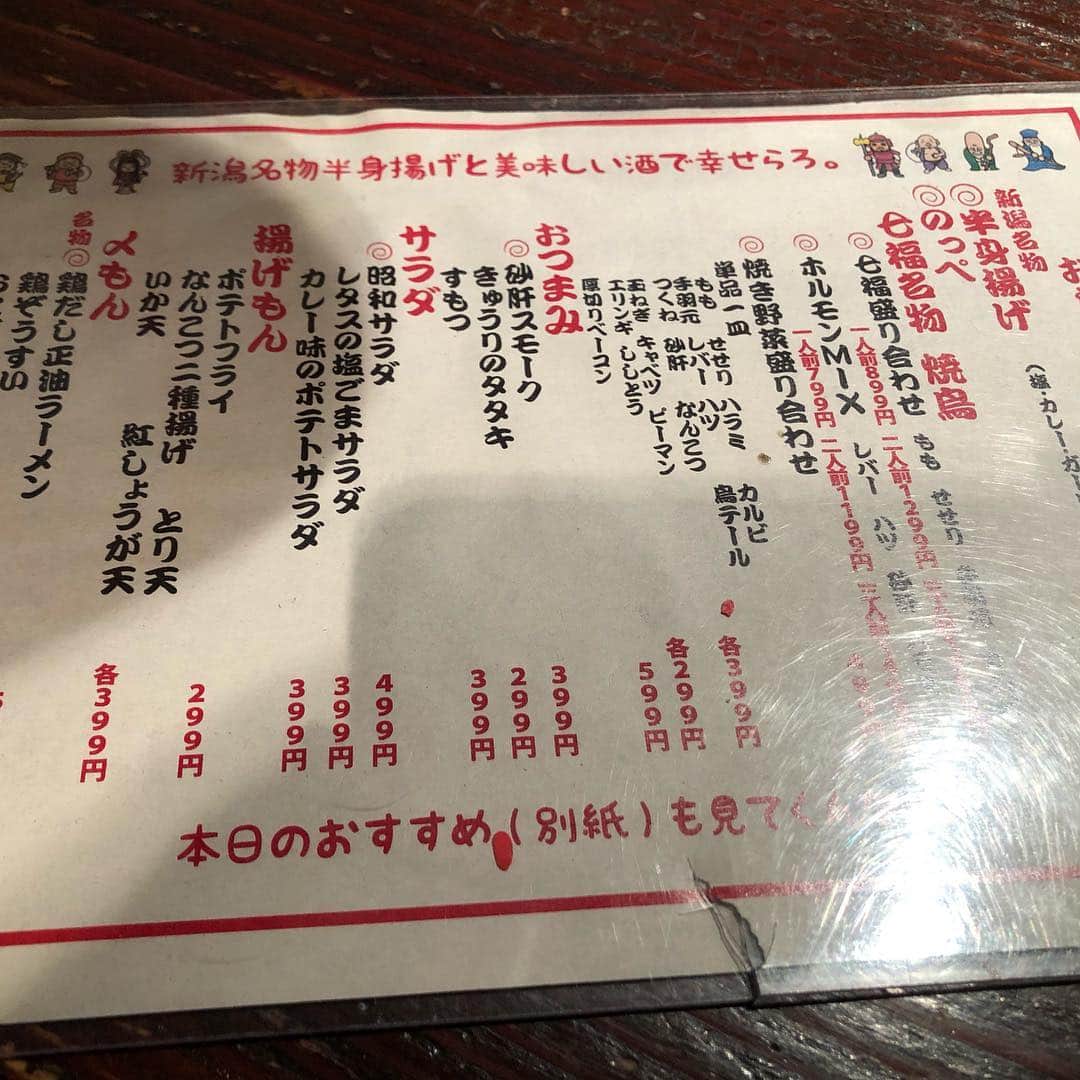 新潟名物半身揚げと美味しい酒で幸せらろ。
新潟名物
半身揚げ
のっぺ
七福名物 焼鳥
七福盛り合わせ もも せせり
一人前899円 二人前1299円
レバー ハツ
ホルモンMIX
一人前799円 二人前1199円
焼き野菜盛り合わせ
単品一皿
せせり ハラミ カルビ
もも レバー ハツ 鳥テール 各399円
手羽元
つくね 砂肝 なんこつ 各299円
玉ねぎ キャベツ ピーマン
エリンギ ししとう
厚切りベーコン 599円
おつまみ
砂肝スモーク 399円
きゅうりのタタキ 299円
すもつ 399円
サラダ
昭和サラダ 499円
レタスの塩ごまサラダ 399円
カレー味のポテトサラダ 399円
揚げもん
ポテトフライ
なんこつ二種揚げ とり天 299円
いか天 紅しょうが天 各399円
〆もん
名物
鶏だし正油ラーメン
鶏ぞうすい
本日のおすすめ(別紙)も見て